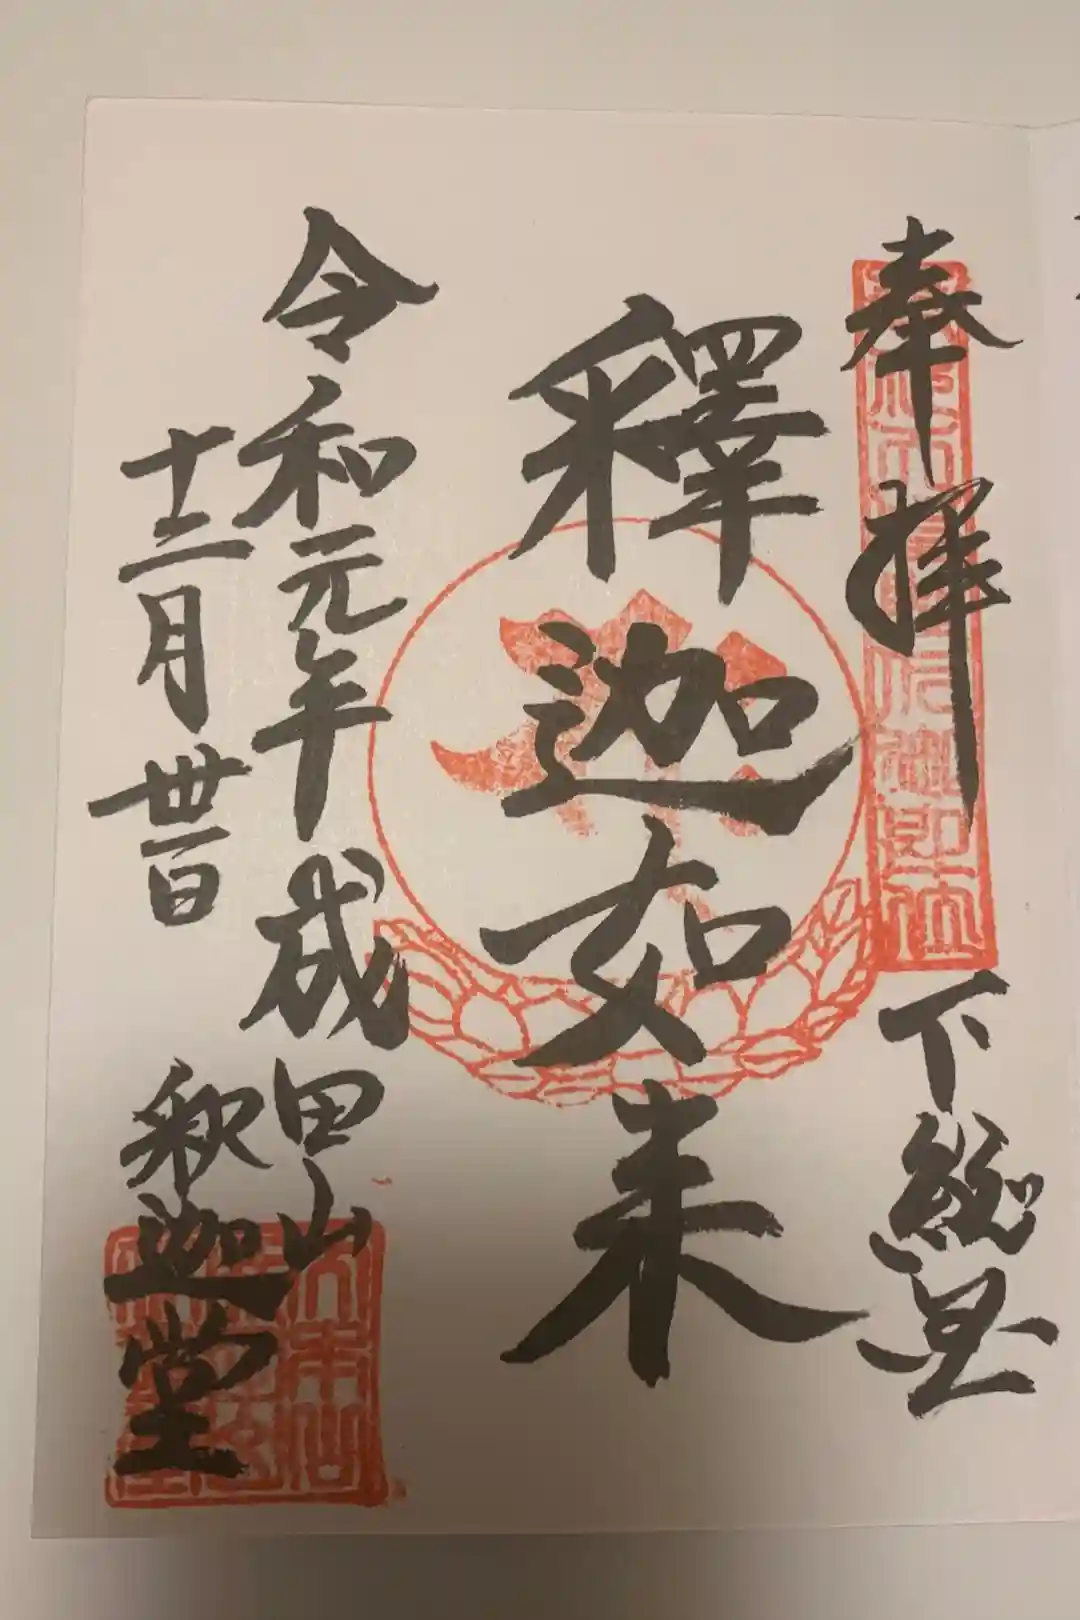 奉拝
下総国
釋迦如来
令和元年成田山
十二月卅一日
釈迦堂